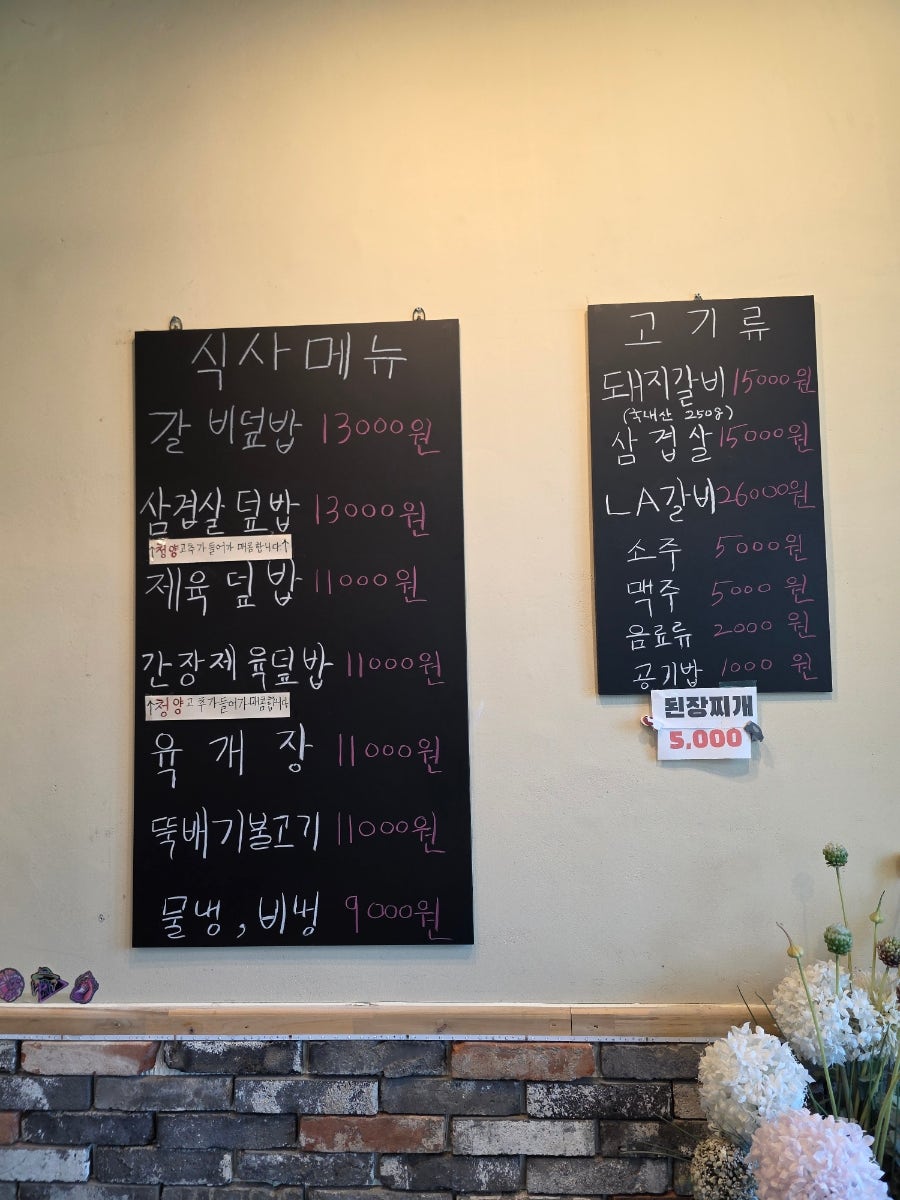 식사메뉴
갈비덮밥 13000원
삼겹살덮밥 13000원
↑청양고추가 들어가 매콤합니다↑
제육덮밥 11000원
간장제육덮밥 11000원
↑청양고추가 들어가 매콤합니다
육개장 11000원
뚝배기불고기 11000원
물냉, 비냉 9000원
고기류
돼지갈비 15000원
(국내산 250g)
삼겹살 15000원
LA갈비 26000원
소주 5000원
맥주 5000원
음료류 2000원
공기밥 1000원
된장찌개
5,000